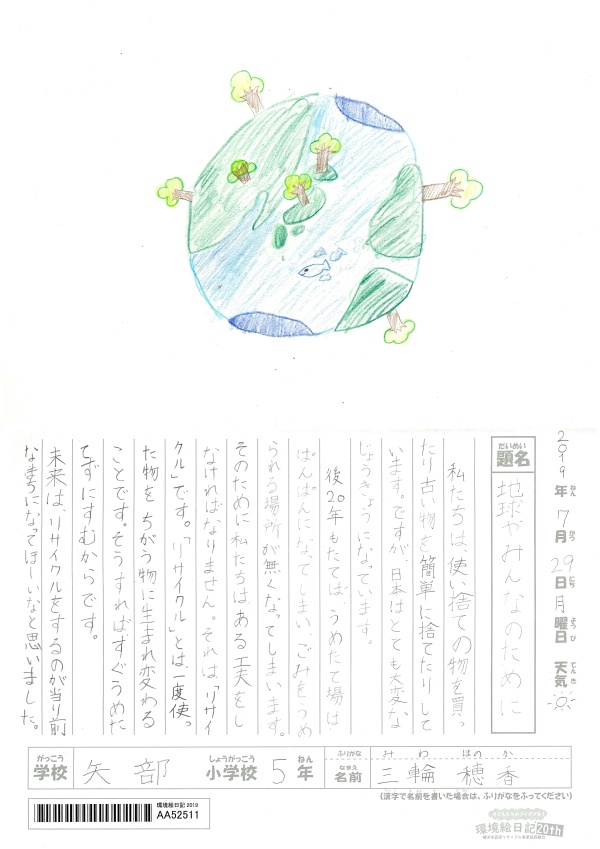 2019年ねん7月がつ29日にち月曜日ようび 天気てんき
題名だいめい 地球やみんなのために
私たちは、使い捨ての物を買っ
たり古い物を簡単に捨てたりして
います。ですが、日本はとても大変な
じょうきょうになっています。
後20年もたてば、うめたて場は
ぱんぱんになってしまい、ごみをうめ
られる場所が無くなってしまいます。
そのために私たちはある工夫をし
なければなりません。それは、「リサイ
クル」です。「リサイクル」とは、一度使っ
た物を、ちがう物に生まれ変わる
ことです。そうすれば、すぐうめた
てずにすむからです。
未来は、リサイクルをするのが当り前
なまちになってほしいなと思いました。
学校がっこう 矢部 小学校しょうがっこう 5年ねん
ふりがな みわ ほのか
名前なまえ 三輪 穂香
(漢字で名前を書いた場合は、ふりがなをふってください)
環境絵日記 2019
AA52511
環境絵日記20th